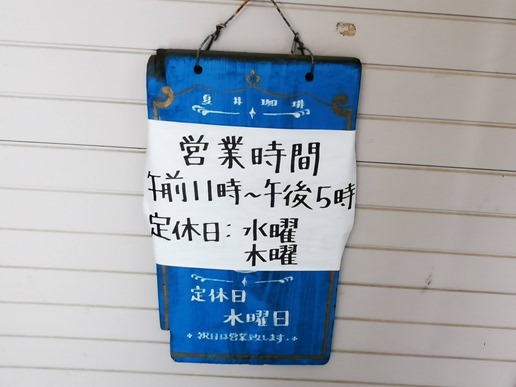 夏井珈琲
営業時間
午前11時~午後5時
定休日: 水曜
木曜
定休日
水曜日
祝日は営業致します。